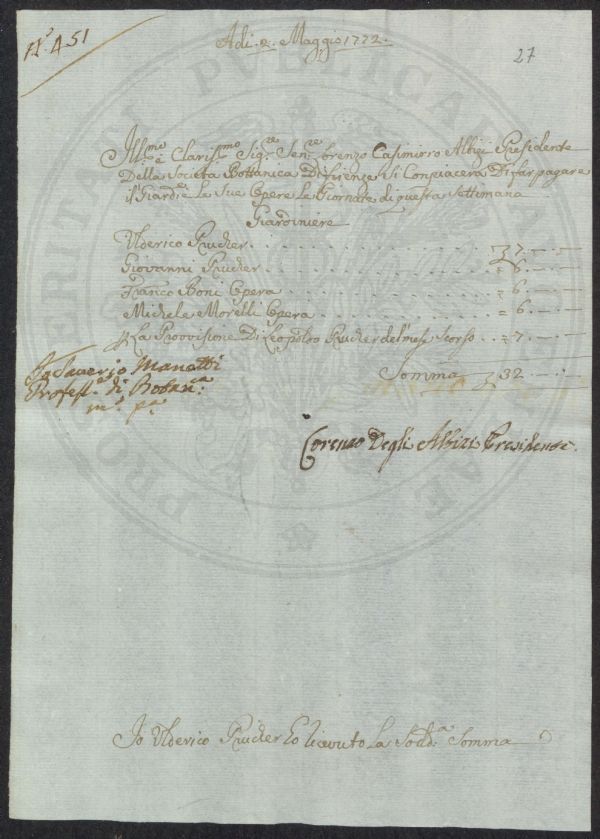 N.º 451
Adi 2. Maggio 1772.
27
Ill.mo e Clariss.mo Sig.re Sen.re Lorenzo Casimirro Albizi Presidente
Della Società Bottanica Di Firenze Si Compiacerà Di far pagare
il Giard.e e Le Sue Opere Le Giornate di questa Settimana
Giardiniere
Ulderico Prucker . . . 7 . — . —
Giovanni Prucker . . . = 6 . — . —
Franco Boni Opera . . . = 6 . — . —
Michele Morelli Opera . . . = 6 . — . —
p La Provvisione Di Leopoldo Prucker del mese Scorso . . = 7 . — . —
Somma 32 . — . —
Io Saverio Manetti
Profess.e di Botan.ca
m.o p.a
Lorenzo Degli Albizi Presidente.
Io Ulderico Prucker ho ricevuto La Sodd.a Somma
PUBLICAE